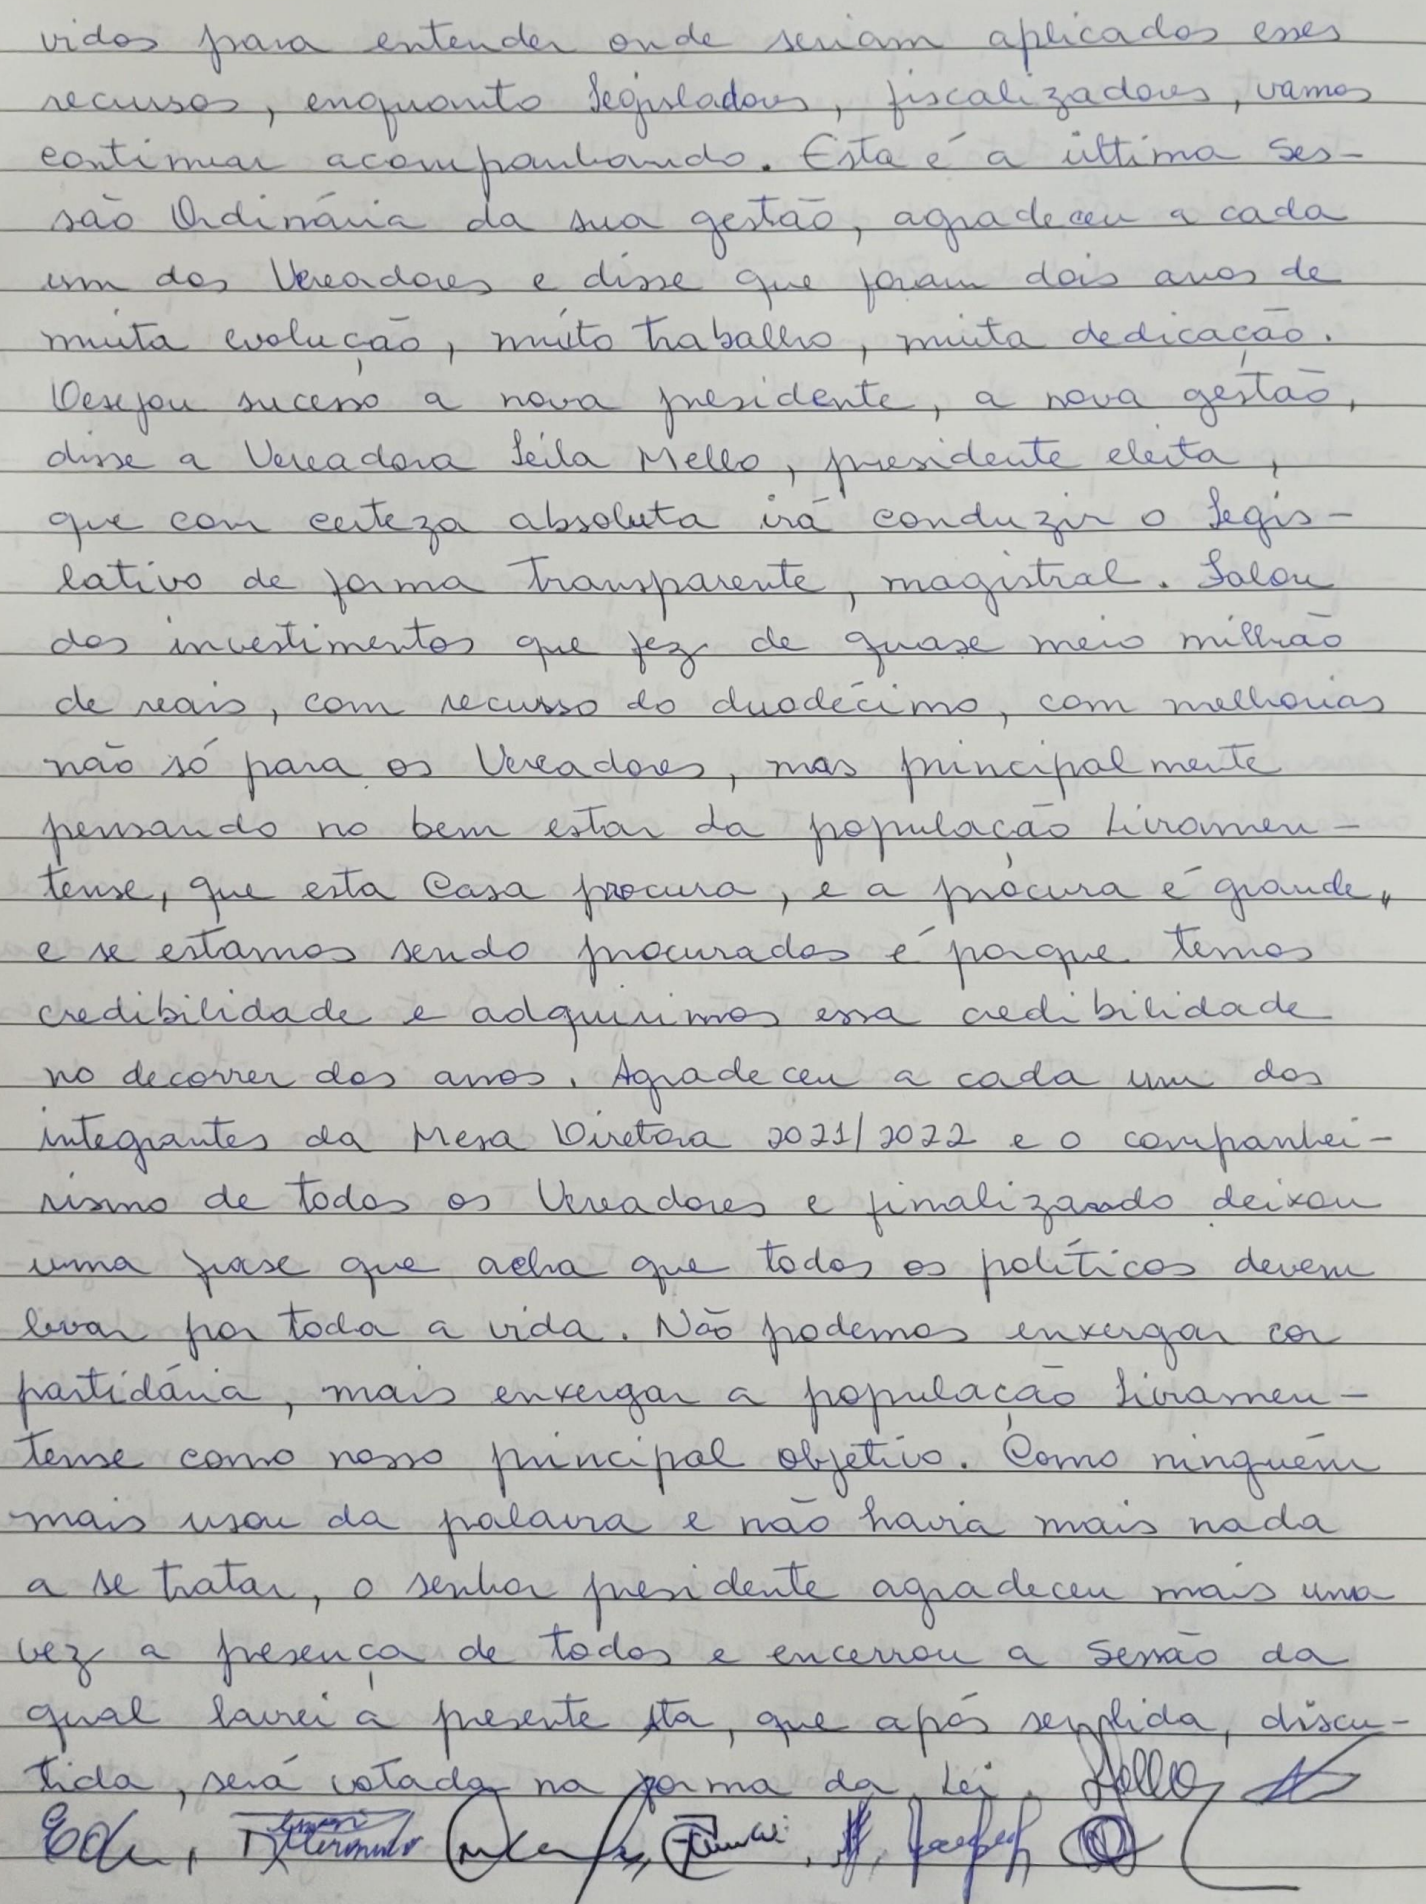 vidos para entender onde seriam aplicados esses
recursos, enquanto Legisladores, fiscalizadores, vamos
continuar acompanhando. Esta é a última Ses-
são Ordinária da sua gestão, agradeceu a cada
um dos Vereadores e disse que foram dois anos de
muita evolução, muito trabalho, muita dedicação.
Desejou sucesso a nova presidente, a nova gestão,
disse a Vereadora Leila Mello, presidente eleita,
que com certeza absoluta irá conduzir o Legis-
lativo de forma transparente, magistral. Falou
dos investimentos que fez de quase meio milhão
de reais, com recurso do duodécimo, com melhorias
não só para os Vereadores, mas principalmente
pensando no bem estar da população Livramen-
tense, que esta Casa procura, e a procura é grande,
e se estamos sendo procurados é porque temos
credibilidade e adquirimos essa credibilidade
no decorrer dos anos. Agradeceu a cada um dos
integrantes da Mesa Diretora 2021/2022 e o companhei-
rismo de todos os Vereadores e finalizando deixou
uma frase que acha que todos os políticos devem
levar por toda a vida. Não podemos enxergar cor
partidária, mais enxergar a população Livramen-
tense como nosso principal objetivo. Como ninguém
mais usou da palavra e não havia mais nada
a se tratar, o senhor presidente agradeceu mais uma
vez a presença de todos e encerrou a Sessão da
qual lavrei a presente Ata, que após lida, discu-
tida, será votada na forma da Lei.